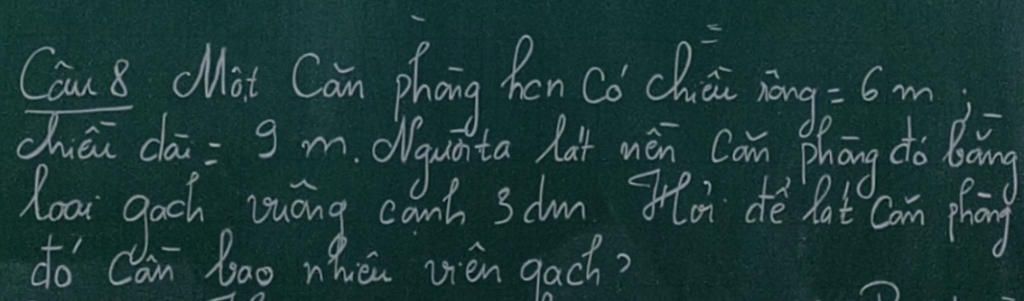 Câu 8 Một Căn phòng hcn có chiều rộng = 6 m ;
chiều dài = 9 m. Người ta lát nền căn phòng đó bằng
loại gạch vuông cạnh 3 dm. Hỏi để lát căn phòng
đó cần bao nhiêu viên gạch?